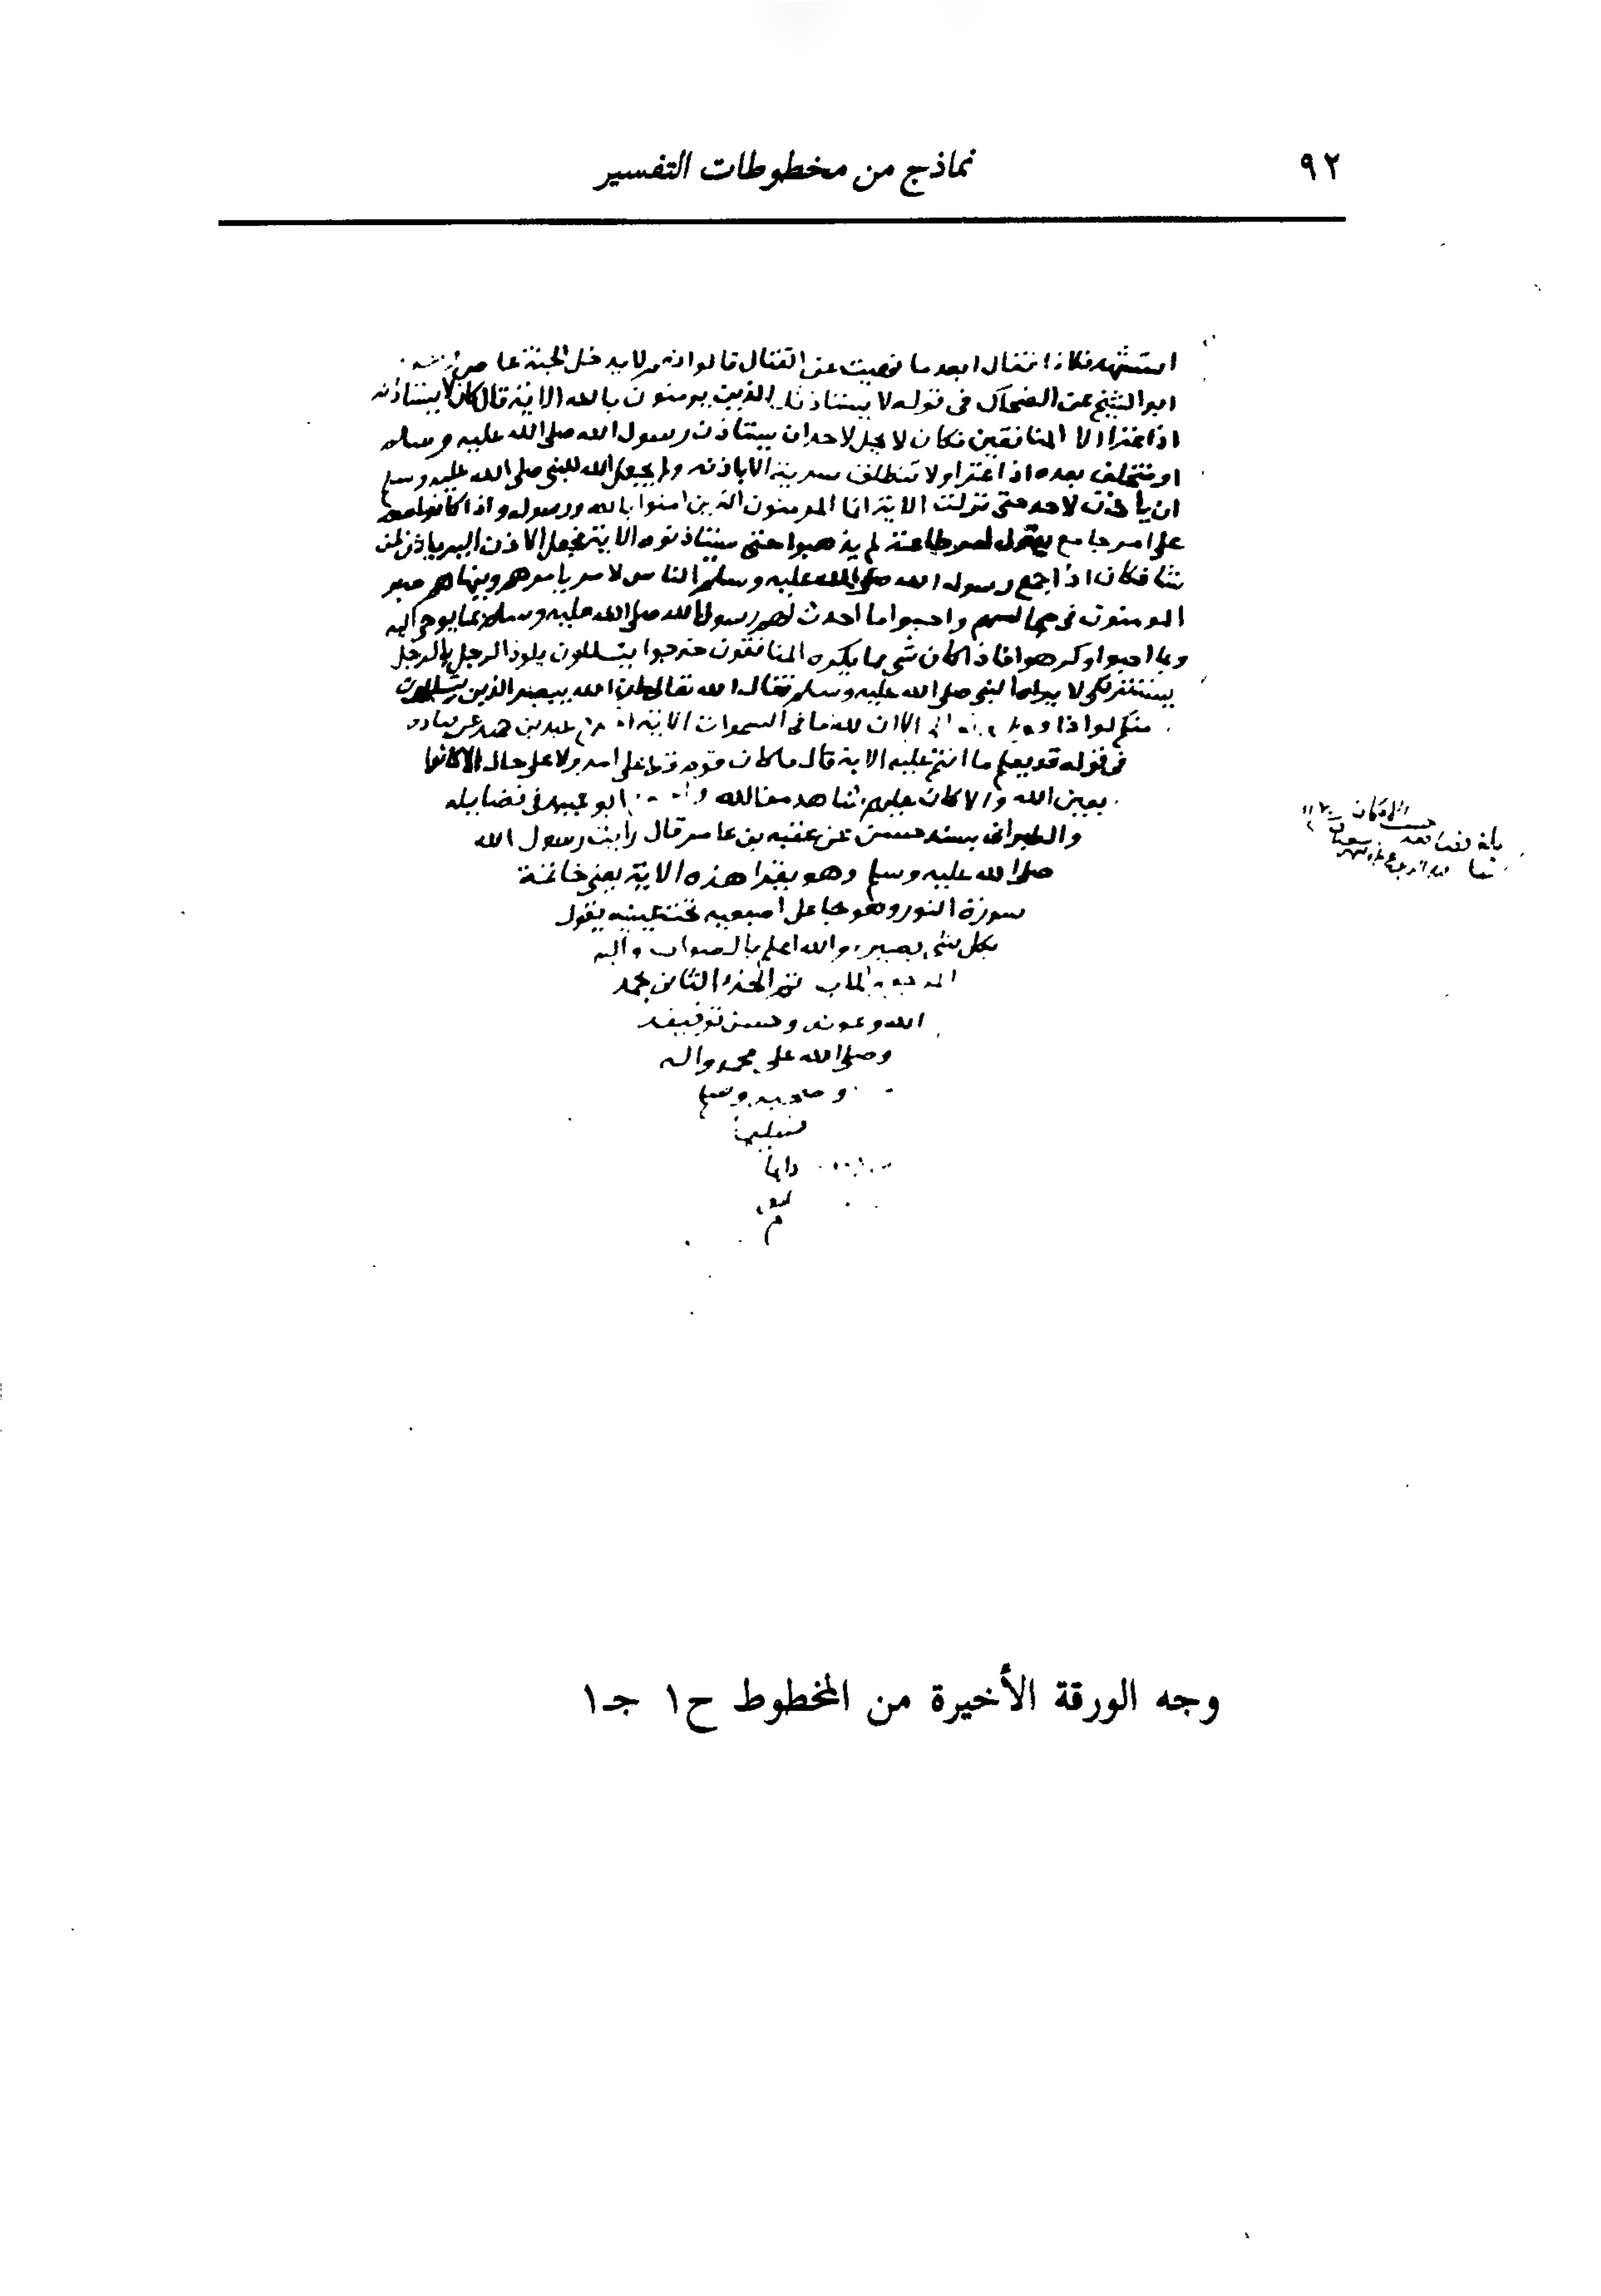 ٩٢
نماذج من مخطوطات التفسير
استشهد فقال ابعد ما نهيت عن القتال قالوا نعم لا يدخل الجنة عاص
ابو الشيخ عن الضحاك في قوله لا يستاذنك الذين يومنون بالله الاية قال كان لا يستاذنه
اذا غزا الا المنافقين فكان لا يحل لاحد ان يستاذن رسول الله صلى الله عليه وسلم
او يتخلف بعده اذا غزا ولا تنطلق سرية الا باذنه ولم يجعل الله للنبي صلى الله عليه وسلم
ان ياذن لاحد حتى نزلت الاية انما المومنون الذين امنوا بالله ورسوله واذا كانوا معه
على امر جامع يقول امر طاعة لم يذهبوا حتى يستاذنوه الاية فجعل الاذن اليه ياذن لمن
شا فكان اذا جمع رسول الله صلى الله عليه وسلم الناس لامر يامرهم وينهاهم صبر
المومنون في مجالسهم واحبوا ما احدث لهم رسول الله صلى الله عليه وسلم بما يوحى اليه
وبما احبوا وكرهوا فاذا كان شي مما يكره المنافقون خرجوا يتسللون يلوذ الرجل بالرجل
يستتر لكي لا يراه النبي صلى الله عليه وسلم فقال الله تعالى ان الله يبصر الذين يتسللون
منكم لواذا الا ان لله ما في السموات الاية عبد بن حميد عن قتادة
في قوله قد يعلم ما انتم عليه الاية قال ما كان قوم قط على امر ولا على حال الا كانوا
بعين الله والا كان عليهم شاهد من الله ابو عبيد في فضايله
والطبراني بسند حسن عن عقبة بن عامر قال رايت رسول الله
صلى الله عليه وسلم وهو يقرا هذه الاية يعني خاتمة
سورة النور وهو جاعل اصبعيه تحت عينيه يقول
بكل شي بصير والله اعلم بالصواب واليه
المرجع والماب تم الجزء الثاني بحمد
الله وعونه وحسن توفيقه
وصلى الله على محمد واله
وصحبه وسلم
تسليما
دايما
م
وجه الورقة الأخيرة من المخطوط ح١ جـ١